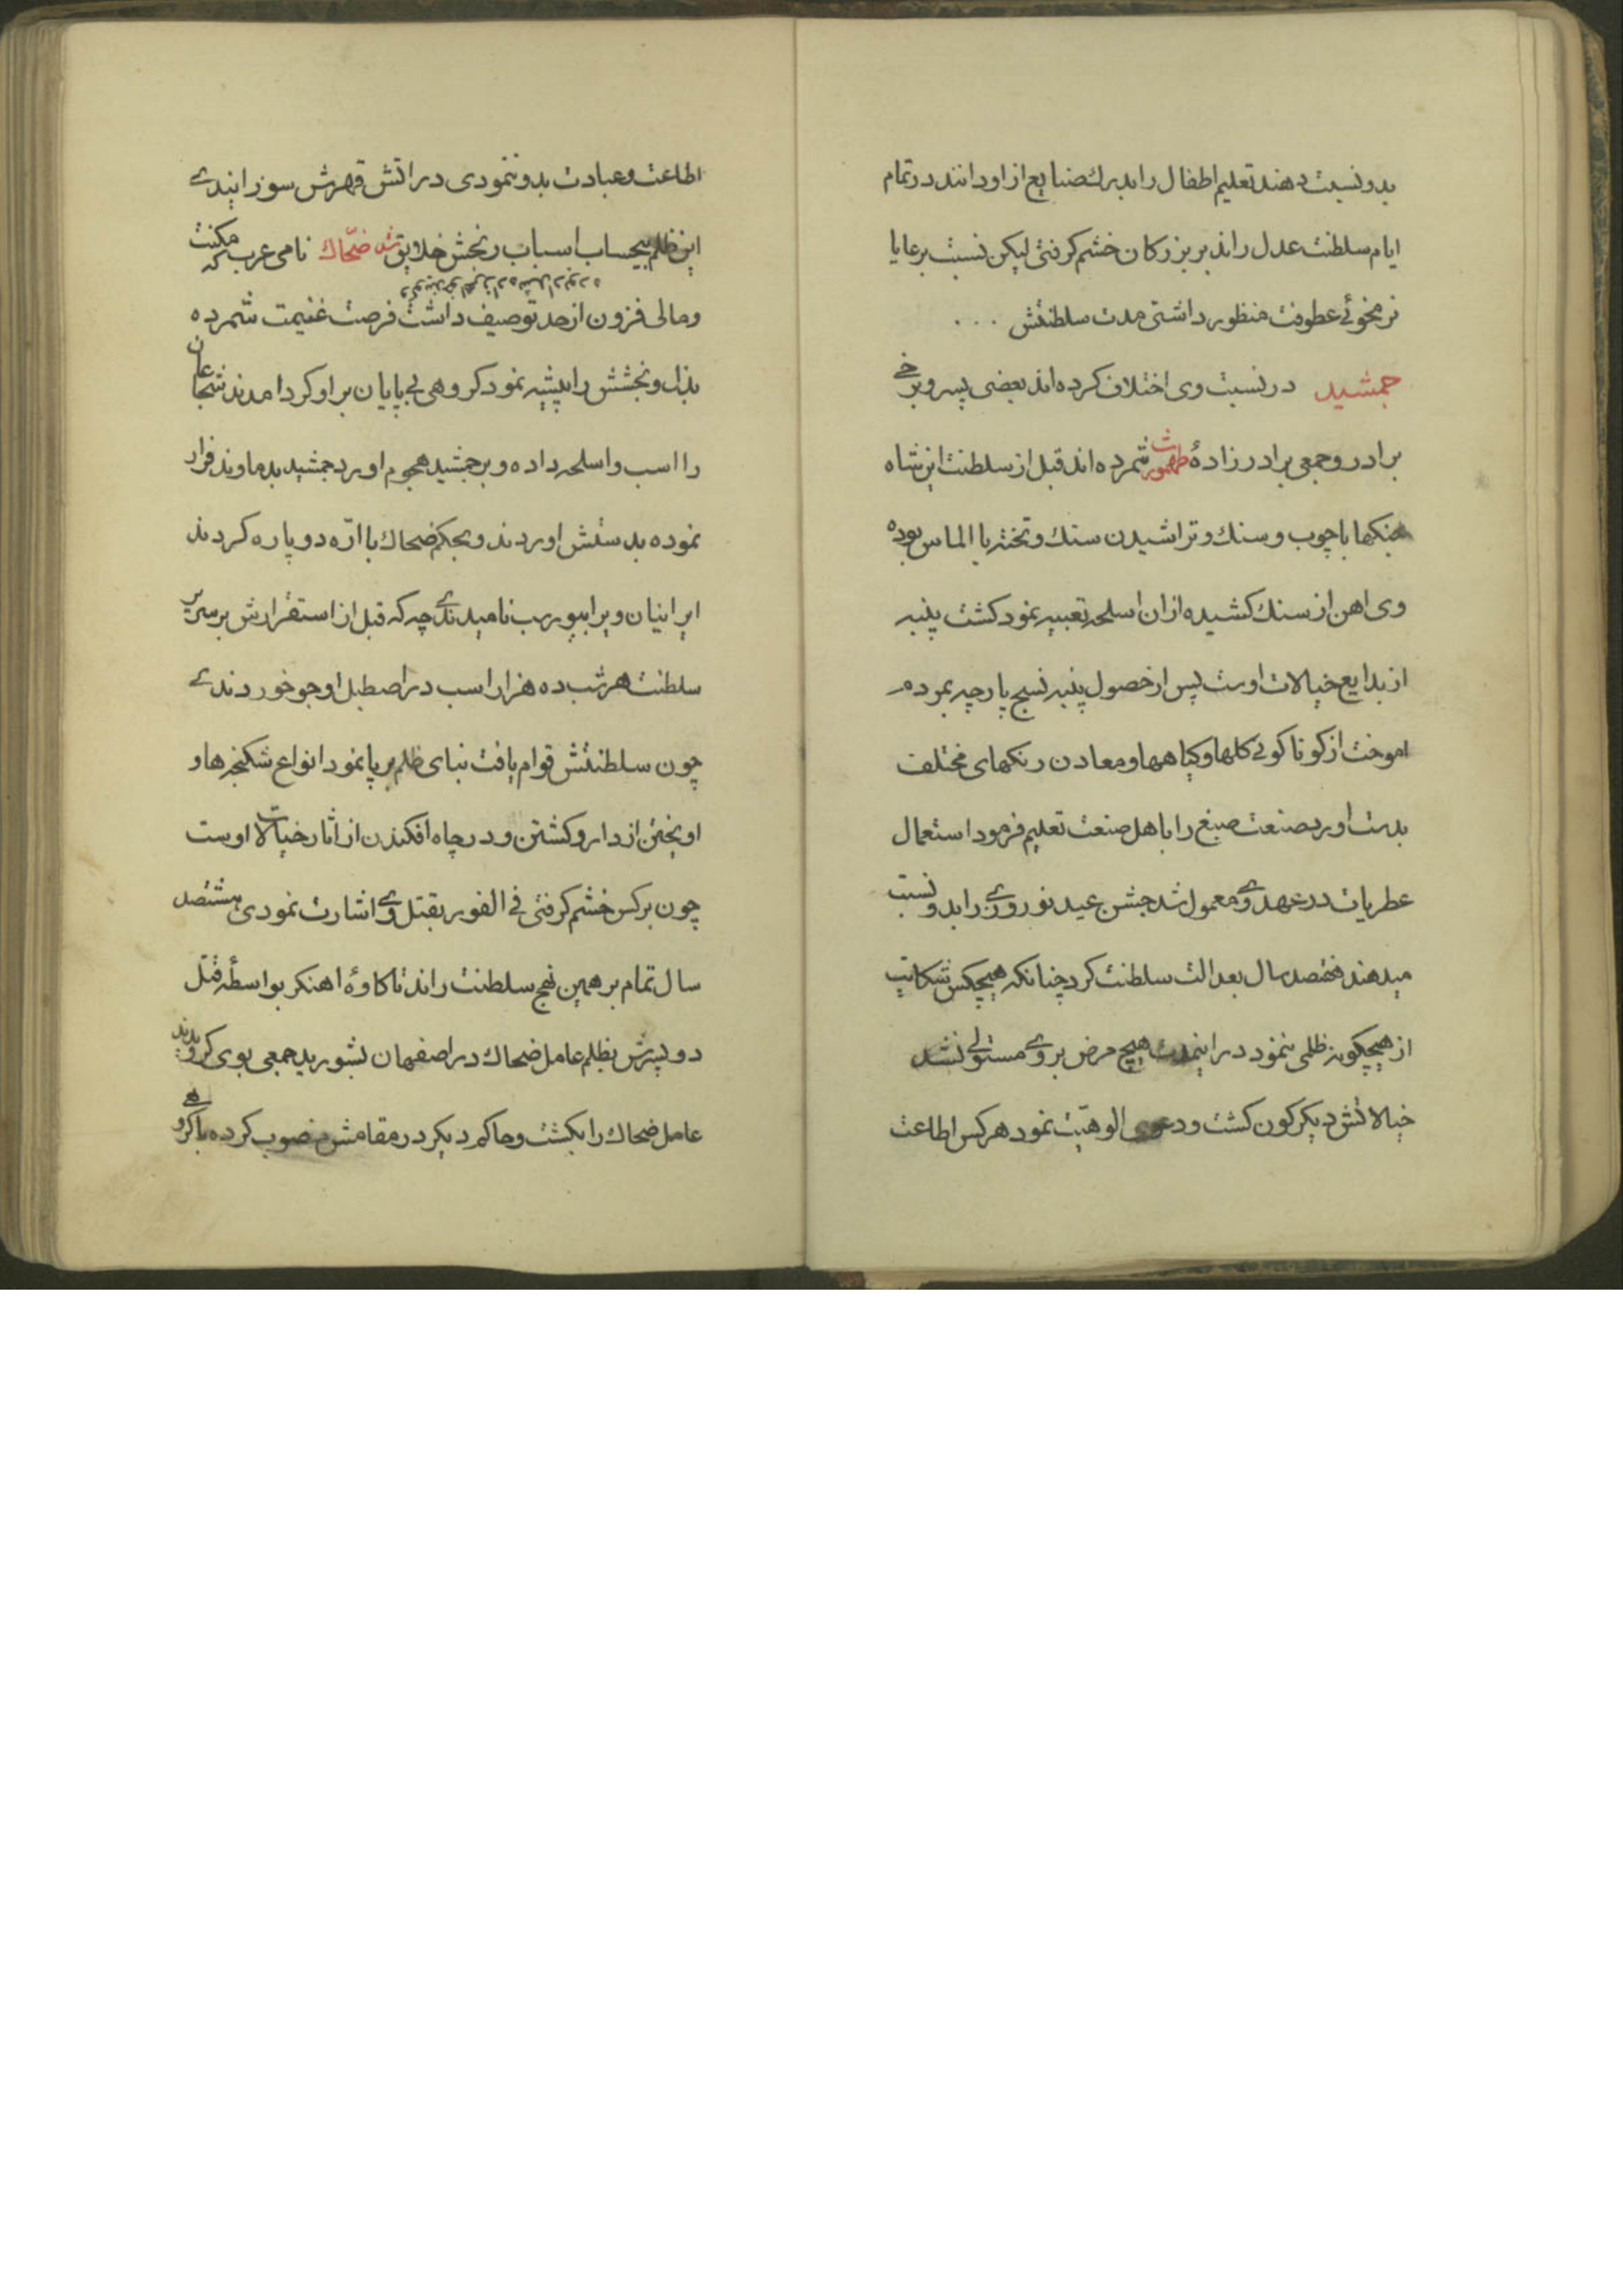 بدو نسبت دهند تعلیم اطفال را بدرك صنایع از او دانند در تمام
ایام سلطنت عدل راند بر بزرکان خشم کرفتی لیکن نسبت برعایا
نرمخوئی عطوفت منظور داشتی مدت سلطنتش ...
جمشید در نسبت وی اختلاف کرده‌اند بعضی پسر و برخی
برادر و جمعی برادرزادهٔ طهمورث شمرده‌اند قبل از سلطنت این شاه
جنکها با چوب و سنك و تراشیدن سنك و تخته با الماس بوده
وی اهن از سنك کشیده از ان اسلحه تعبیه نمود کشت پنبه
از بدایع خیالات اوست پس از حصول پنبه نسج پارچه بمردم
اموخت از کوناکونی کلها و کیاهها و معادن رنکهای مختلف
بدست اورد صنعت صبغ را باهل صنعت تعلیم فرمود استعمال
عطریات در عهد وی معمول شد جشن عید نوروزی را بدو نسبت
میدهند هفتصد سال بعدالت سلطنت کرد چنانکه هیچکس شکایت
از هیچکونه ظلمی ننمود در اینمدت هیچ مرض بر وی مستولی نشد
خیالاتش دیکرکون کشت و دعوی الوهیّت نمود هر کس اطاعت
اطاعت و عبادت بدو ننمودی در اتش قهرش سوزانیدی
این ظلم بیحساب اسباب رنجش خلایق شد ضحّاك نامی عرب که مکنت
و مالی فزون از حد توصیف داشت فرصت غنیمت شمرده
بذل و بخشش را پیشه نمود کروهی بی پایان بر او کرد امدند شجاعان
را اسب و اسلحه داده و بر جمشید هجوم اورد جمشید بدماوند فرار
نموده بدستش اوردند و بحکم ضحاك با ارّه دو پاره کردند
ایرانیان ویرا بیوراسب نامیدندی چه که قبل از استقرارش بر سریر
سلطنت هر شب ده هزار اسب در اصطبل او جو خوردندی
چون سلطنتش قوام یافت بنای ظلم بر پا نمود انواع شکنجه‌ها و
اویختن از دار و کشتن و در چاه افکندن از اثار خیالات اوست
چون بر کس خشم کرفتی فی الفور بقتل وی اشارت نمودی هشتصد
سال تمام بر همین نهج سلطنت راند تا کاوهٔ اهنکر بواسطهٔ قتل
دو پسرش بظلم عامل ضحاك در اصفهان بشورید جمعی بوی کرویدند
عامل ضحاك را بکشت و حاکم دیکر در مقامش منصوب کرده با کروهی